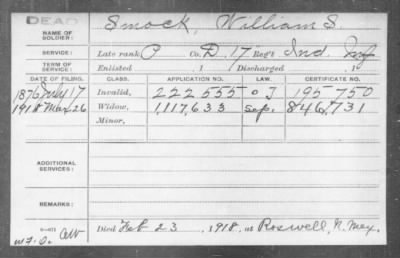 DEAD
NAME OF SOLDIER: Smock, William S.
SERVICE: Late rank P Co. D, 17 Reg't Ind. Inf
TERM OF SERVICE: Enlisted , 1 Discharged , 1
DATE OF FILING. CLASS. APPLICATION NO. LAW. CERTIFICATE NO.
1876 July 17 Invalid, 222 555 O J 195 750
1918 Mar 26 Widow, 1,117,633 Sep. 846,731
Minor,
ADDITIONAL SERVICES:
REMARKS:
Died Feb 23, 1918, at Roswell, N. Mex.